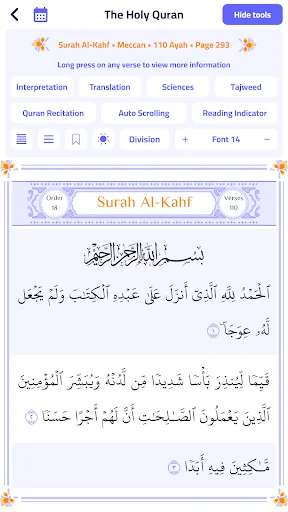 The Holy Quran
Hide tools
Surah Al-Kahf • Meccan • 110 Ayah • Page 293
Long press on any verse to view more information
Interpretation
Translation
Sciences
Tajweed
Quran Recitation
Auto Scrolling
Reading Indicator
Division
+ Font 14 −
Order
18
Surah Al-Kahf
Verses
110
بِسْمِ اللَّهِ الرَّحْمَٰنِ الرَّحِيمِ
ٱلْحَمْدُ لِلَّهِ ٱلَّذِىٓ أَنزَلَ عَلَىٰ عَبْدِهِ ٱلْكِتَٰبَ وَلَمْ يَجْعَل
لَّهُۥ عِوَجَاۜ ١
قَيِّمًا لِّيُنذِرَ بَأْسًا شَدِيدًا مِّن لَّدُنْهُ وَيُبَشِّرَ ٱلْمُؤْمِنِينَ
ٱلَّذِينَ يَعْمَلُونَ ٱلصَّٰلِحَٰتِ أَنَّ لَهُمْ أَجْرًا حَسَنًا ٢
مَّٰكِثِينَ فِيهِ أَبَدًا ٣